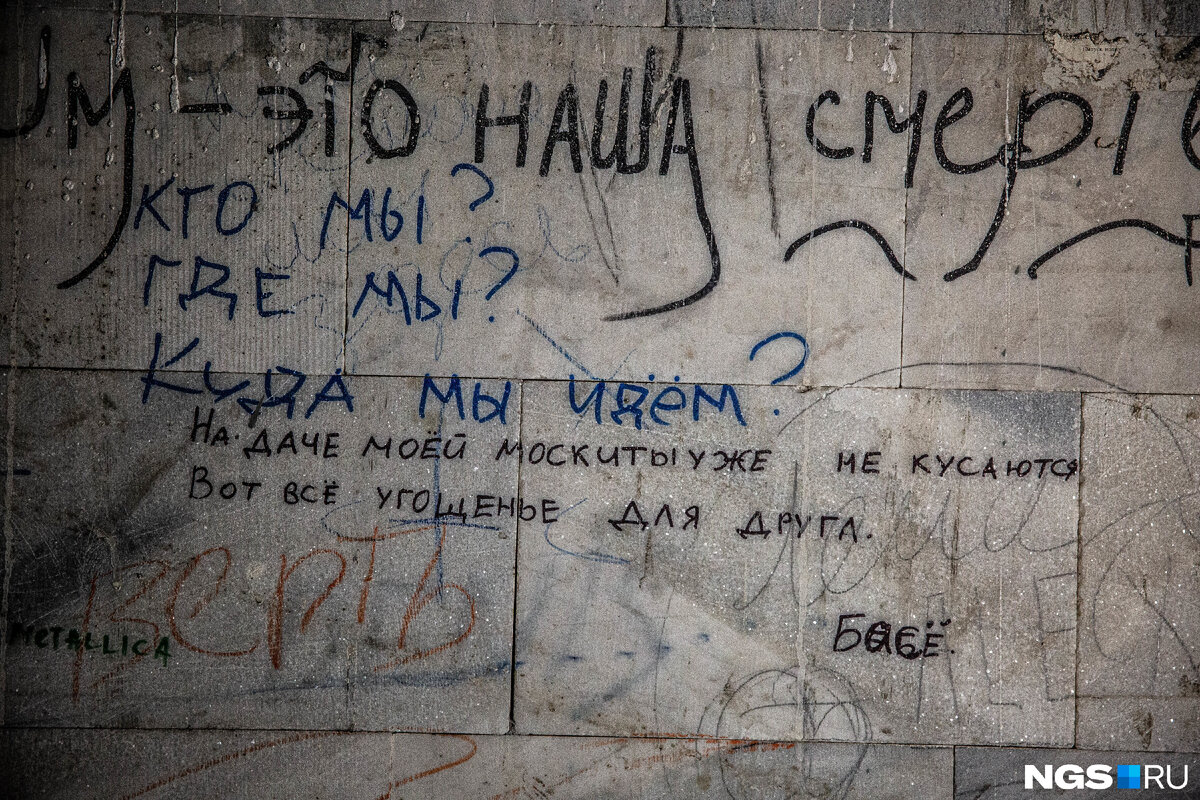 ум - это наша смерть
кто мы?
где мы?
куда мы идём?
На даче моей москиты уже не кусаются
Вот всё угощенье для друга.
верть
METALLICA
Басё.
NGS RU